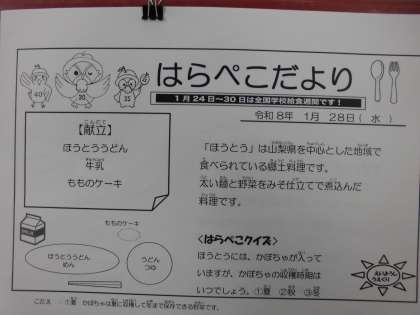 はらぺこだより
1月24日~30日は全国学校給食週間です！
令和8年 1月 28日（水）
40
30
35
【献立】
ほうとううどん
牛乳
もものケーキ
「ほうとう」は山梨県を中心とした地域で
食べられている郷土料理です。
太い麺と野菜をみそ仕立てで煮込んだ
料理です。
もものケーキ
ほうとううどん
めん
うどん
つゆ
<はらぺこクイズ>
ほうとうには、かぼちゃが入って
いますが、かぼちゃの収穫時期は
いつでしょう。①夏 ②秋 ③冬
えいようし
こたえ：①夏 かぼちゃは夏に収穫して冬まで保存できる野菜です。